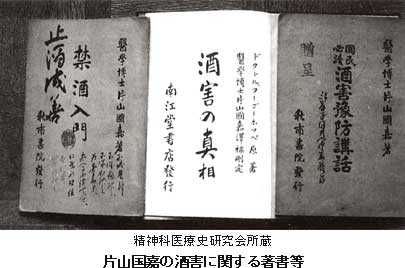 醫學博士片山國嘉著
國民必讀
酒害豫防講話
贈呈
書院發行
ドクトル、フーゴーホッペ原著
醫學博士片山國嘉譯補刪定
酒害の真相
南江堂書店發行
醫學博士片山國嘉著
禁酒入門
書院發行
精神科医療史研究会所蔵
片山国嘉の酒害に関する著書等